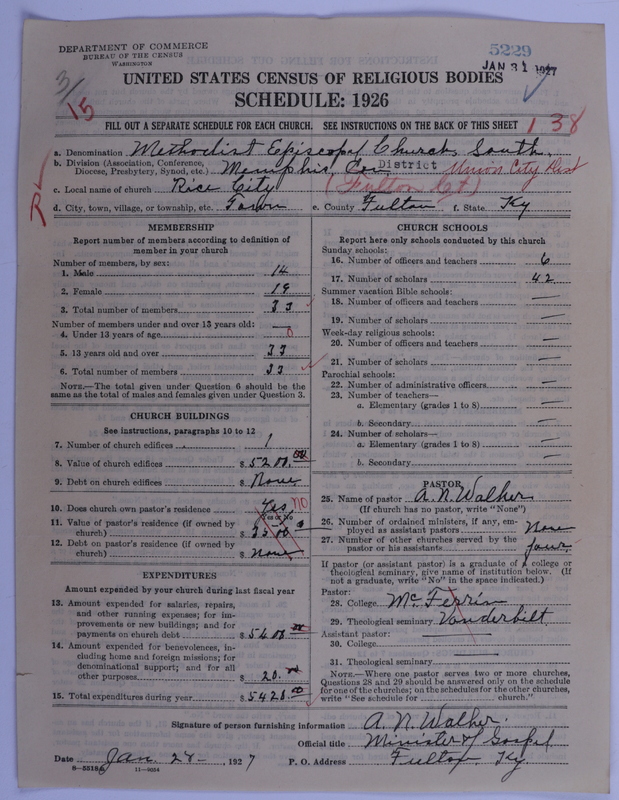 DEPARTMENT OF COMMERCE
BUREAU OF THE CENSUS
WASHINGTON
5229
JAN 31 1927
3/15
UNITED STATES CENSUS OF RELIGIOUS BODIES
SCHEDULE: 1926
FILL OUT A SEPARATE SCHEDULE FOR EACH CHURCH. SEE INSTRUCTIONS ON THE BACK OF THIS SHEET
1 38
a. Denomination Methodist Episcopal Church, South.
b. Division (Association, Conference, Diocese, Presbytery, Synod, etc.) Memphis, Con District Union City Dist
c. Local name of church Rice City (Fulton Ct)
d. City, town, village, or township, etc. Town e. County Fulton f. State Ky
MEMBERSHIP
Report number of members according to definition of
member in your church
Number of members, by sex:
1. Male 14
2. Female 19
3. Total number of members 33
Number of members under and over 13 years old:
4. Under 13 years of age 0
5. 13 years old and over 33
6. Total number of members 33
NOTE.—The total given under Question 6 should be
same as the total of males and females given under Question 3.
CHURCH BUILDINGS
See instructions, paragraphs 10 to 12
7. Number of church edifices 1
8. Value of church edifices $ 5200.00
9. Debt on church edifices $ None
10. Does church own pastor's residence Yes no
(Yes or No)
11. Value of pastor's residence (if owned by
church) $ 3500
12. Debt on pastor's residence (if owned by
church) $ None
EXPENDITURES
Amount expended by your church during last fiscal year
13. Amount expended for salaries, repairs,
and other running expenses; for im-
provements or new buildings; and for
payments on church debt $ 5400 00
14. Amount expended for benevolences, in-
cluding home and foreign missions; for
denominational support; and for all
other purposes $ 20.00
15. Total expenditures during year $ 5420.00
CHURCH SCHOOLS
Report here only schools conducted by this church
Sunday schools:
16. Number of officers and teachers 6
17. Number of scholars 42
Summer vacation Bible schools:
18. Number of officers and teachers —
19. Number of scholars —
Week-day religious schools:
20. Number of officers and teachers —
21. Number of scholars —
Parochial schools:
22. Number of administrative officers —
23. Number of teachers—
a. Elementary (grades 1 to 8) —
b. Secondary —
24. Number of scholars—
a. Elementary (grades 1 to 8) —
b. Secondary —
PASTOR
25. Name of pastor A. N. Walker
(If church has no pastor, write "None")
26. Number of ordained ministers, if any, em-
ployed as assistant pastors None
27. Number of other churches served by the
pastor or his assistants four.
If pastor (or assistant pastor) is a graduate of a college or
theological seminary, give name of institution below. (If
not a graduate, write "No" in the space indicated.)
Pastor:
28. College Mc Ferrin
29. Theological seminary Vanderbilt
Assistant pastor:
30. College —
31. Theological seminary —
NOTE.—Where one pastor serves two or more churches,
Questions 28 and 29 should be answered only on the schedule
for one of the churches; on the schedules for the other churches,
write "See schedule for church."
Signature of person furnishing information A. N. Walker.
Official title Minister of Gospel
Date Jan. 28—, 1927 P. O. Address Fulton Ky
8—5518a 11—9034